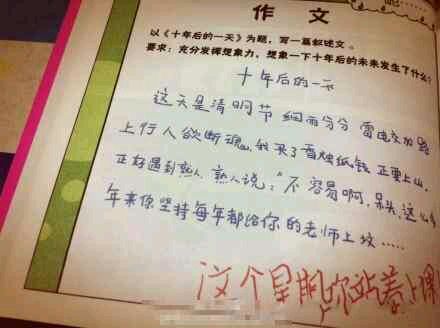 作 文
以《十年后的一天》为题，写一篇叙述文。
要求：充分发挥想象力，想象一下十年后的未来发生了什么？
十年后的一天
这天是清明节 细雨分分 雷电交加 路
上行人欲断魂，我买了香烛纸钱 正要上山，
正好遇到熟人，熟人说："不容易啊，呆头，这么多
年来你坚持每年都给你的老师上坟……
这个星期你站着上课